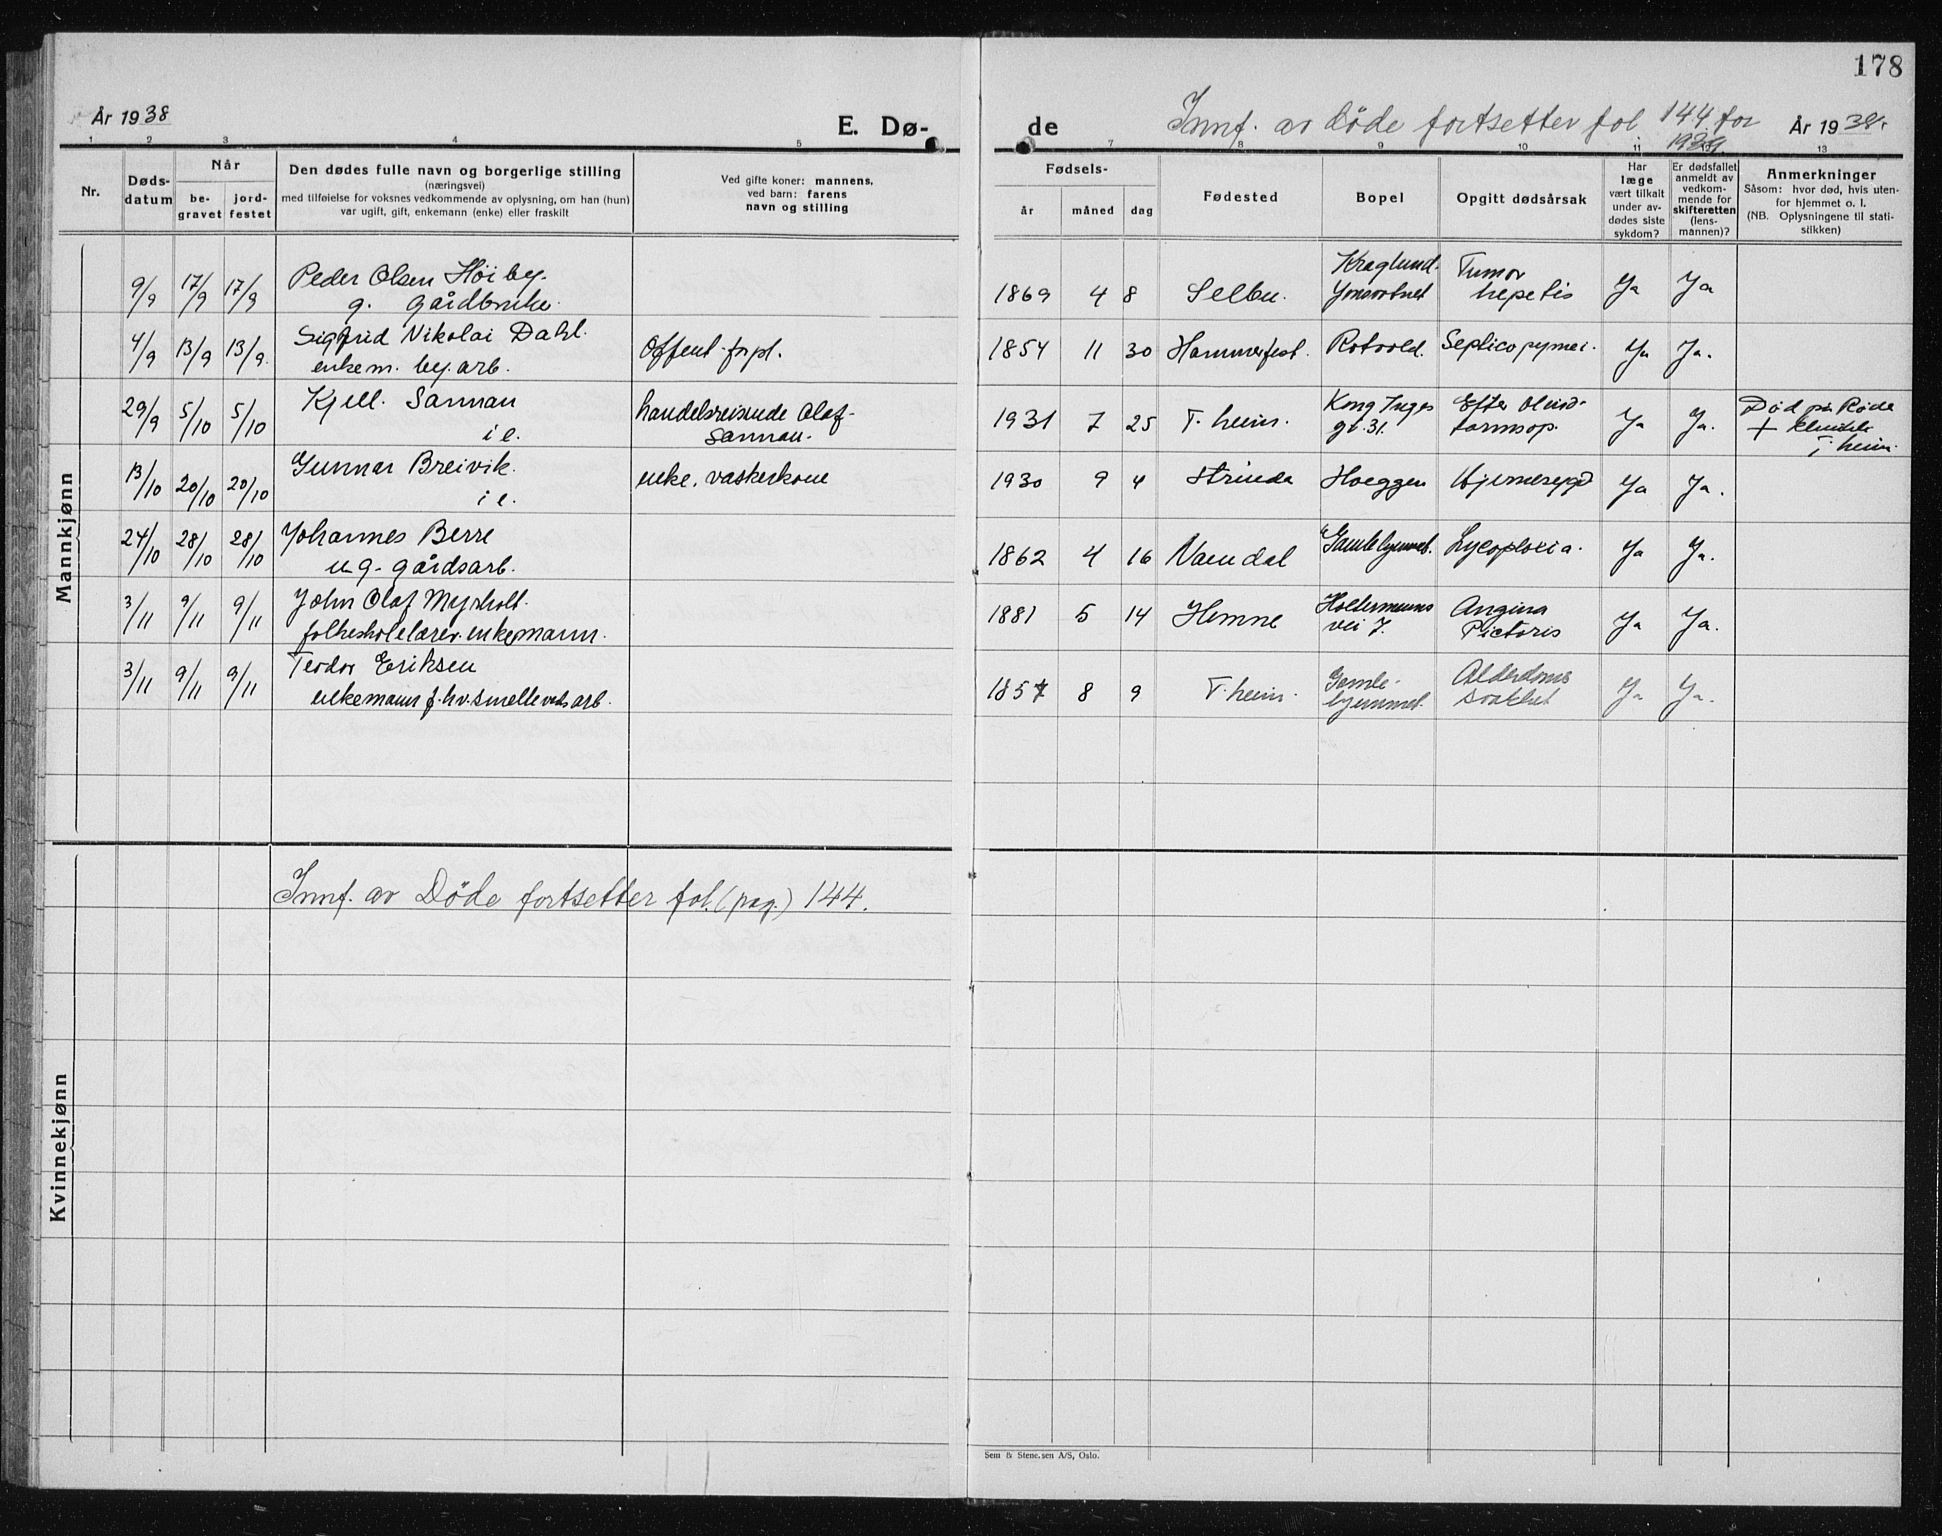 178
År 1938
E. Dø-
de
Innf. av døde fortsetter fol 144 for
1939.
År 1938.
1 2 3 4 5
7 8 9 10 11 13
Nr.
Døds-
datum
Når
be-
gravet
jord-
festet
Den dødes fulle navn og borgerlige stilling
(næringsvei)
med tilføielse for voksnes vedkommende av oplysning, om han (hun)
var ugift, gift, enkemann (enke) eller fraskilt
Ved gifte koner: mannens,
ved barn: farens
navn og stilling
Fødsels-
år måned dag
Fødested
Bopel
Opgitt dødsårsak
Har
læge
vært tilkalt
under av-
dødes siste
sykdom?
Er dødsfallet
anmeldt av
vedkom-
mende for
skifteretten
(lens-
mannen)?
Anmerkninger
Såsom: hvor død, hvis uten-
for hjemmet o. l.
(NB. Oplysningene til stati-
stikken)
Mannkjønn
9/9 17/9 17/9 Peder Olsen Høiby.
g. gårdbruker
1869 4 8 Selbu.
Tumor
hepatis
Ja Ja
4/9 13/9 13/9. Sigfrid Nikolai Dahl.
enkem. by.arb.
Offent. forpl.
1854 11 30 Hammerfest. Rotvold. Septicopymei. Ja Ja.
29/9 5/10 5/10 Kjell Sannan
i e.
handelsreisende Olaf
Sannan.
1931 7 25 T.heim.
Kong Inges
gt. 31.
Efter blind-
tarmsop.
Ja Ja.
Død på Røde
+ klinikk
T.heim.
13/10 20/10 20/10 Gunnar Breivik.
i e.
enke, vaskerkone
1930 9 4 Strinda Hoeggen Ja Ja.
24/10 28/10 28/10 Johannes Berre
ug. gårdsarb.
1862 4 16 Namdal Gamlehjemmet. Ja Ja.
3/11 9/11 9/11 John Olaf Myrholt.
folkeskolelærer. enkemann.
1881 5 14 Hemne
Holtermanns
vei 7.
Angina
Pictoris
Ja Ja.
3/11 9/11 9/11 Teodor Eriksen
enkemann f.hv. smelleverksarb.
1857 8 9 T.heim.
Gamle-
hjemmet.
Alderdoms
svakhet
Ja Ja.
Kvinnekjønn
Innf. av Døde fortsetter fol. (pag.) 144.
Sem & Stenersen A/S, Oslo.